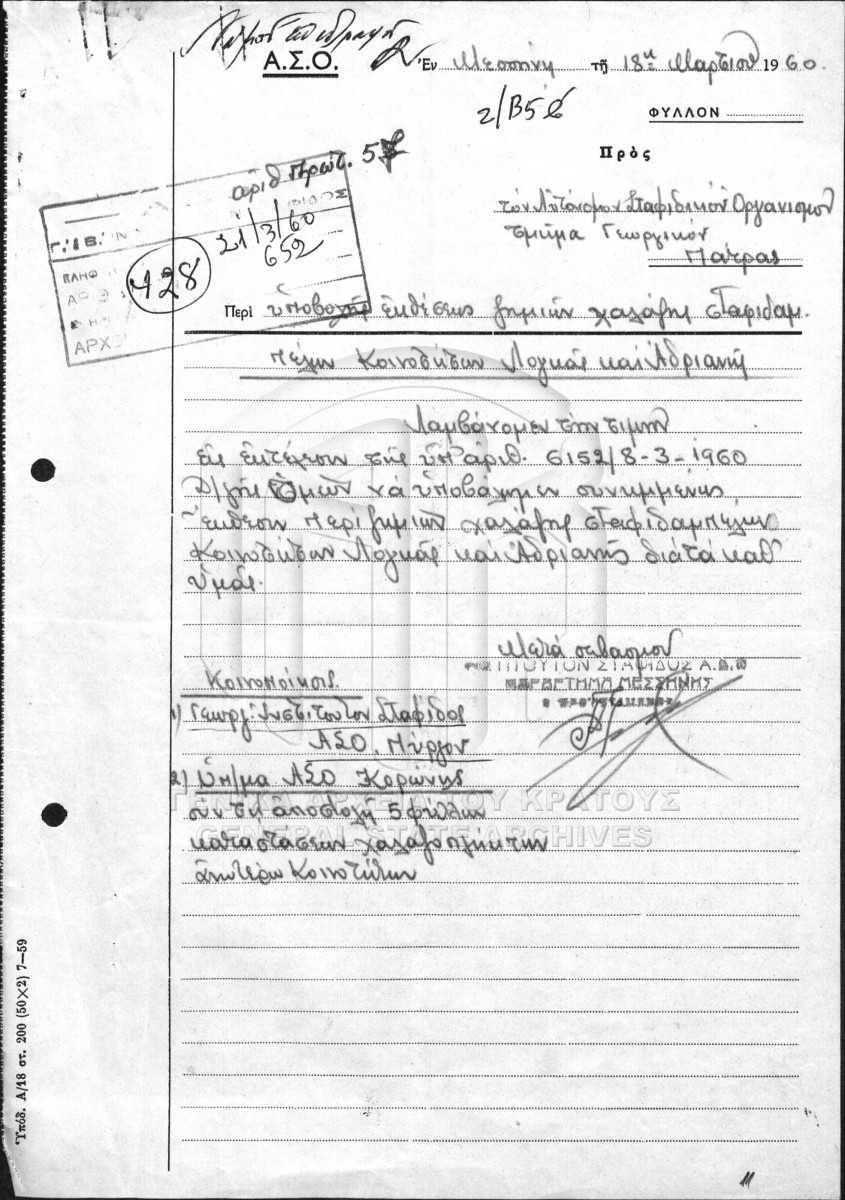 Α.Σ.Ο.
Ἐν Μεσσήνῃ τῇ 18η Μαρτίου 1960.
2/Β5
ΦΥΛΛΟΝ
Πρὸς
ἀριθ. πρωτ. 57
21/3/60
652
428
Γ.' & Β.'
ΠΛΗΦ
ΑΡΧ
τὸν Αὐτόνομον Σταφιδικὸν Ὀργανισμὸν
Τμῆμα Γεωργικὸν
Πάτρας
Περὶ ὑποβολῆς ἐκθέσεως ζημιῶν χαλάζης σταφιδαμ-
πέλων Κοινοτήτων Λογκᾶς καὶ Ἀδριανῆς
Λαμβάνομεν τὴν τιμὴν
εἰς ἐκτέλεσιν τῆς ὑπ' ἀριθ. 6152/8-3-1960
Δ/γῆς ὑμῶν νὰ ὑποβάλωμεν συνημμένως
ἔκθεσιν περὶ ζημιῶν χαλάζης σταφιδαμπέλων
Κοινοτήτων Λογκᾶς καὶ Ἀδριανῆς διὰ τὰ καθ'
ὑμᾶς.
Μετὰ σεβασμοῦ
ΙΝΣΤΙΤΟΥΤΟΝ ΣΤΑΦΙΔΟΣ Α.Σ.Ο
ΠΑΡΑΡΤΗΜΑ ΜΕΣΣΗΝΗΣ
Ο ΠΡΟΪΣΤΑΜΕΝΟΣ
Κοινοποίησις.
1) Γεωργ: Ἰνστιτοῦτον Σταφίδος
ΑΣΟ, Πύργον
2) Ὑπ/μα ΑΣΟ Κορώνης
σὺν τῇ ἀποστολῇ 5 φύλλων
καταστάσεων χαλαζοπλήκτων
ἀνωτέρω Κοινοτήτων
ΓΕΝΙΚΑ ΑΡΧΕΙΑ ΤΟΥ ΚΡΑΤΟΥΣ
GENERAL STATE ARCHIVES
Ὑπόδ. Α/18 στ. 200 (50×2) 7—59
11